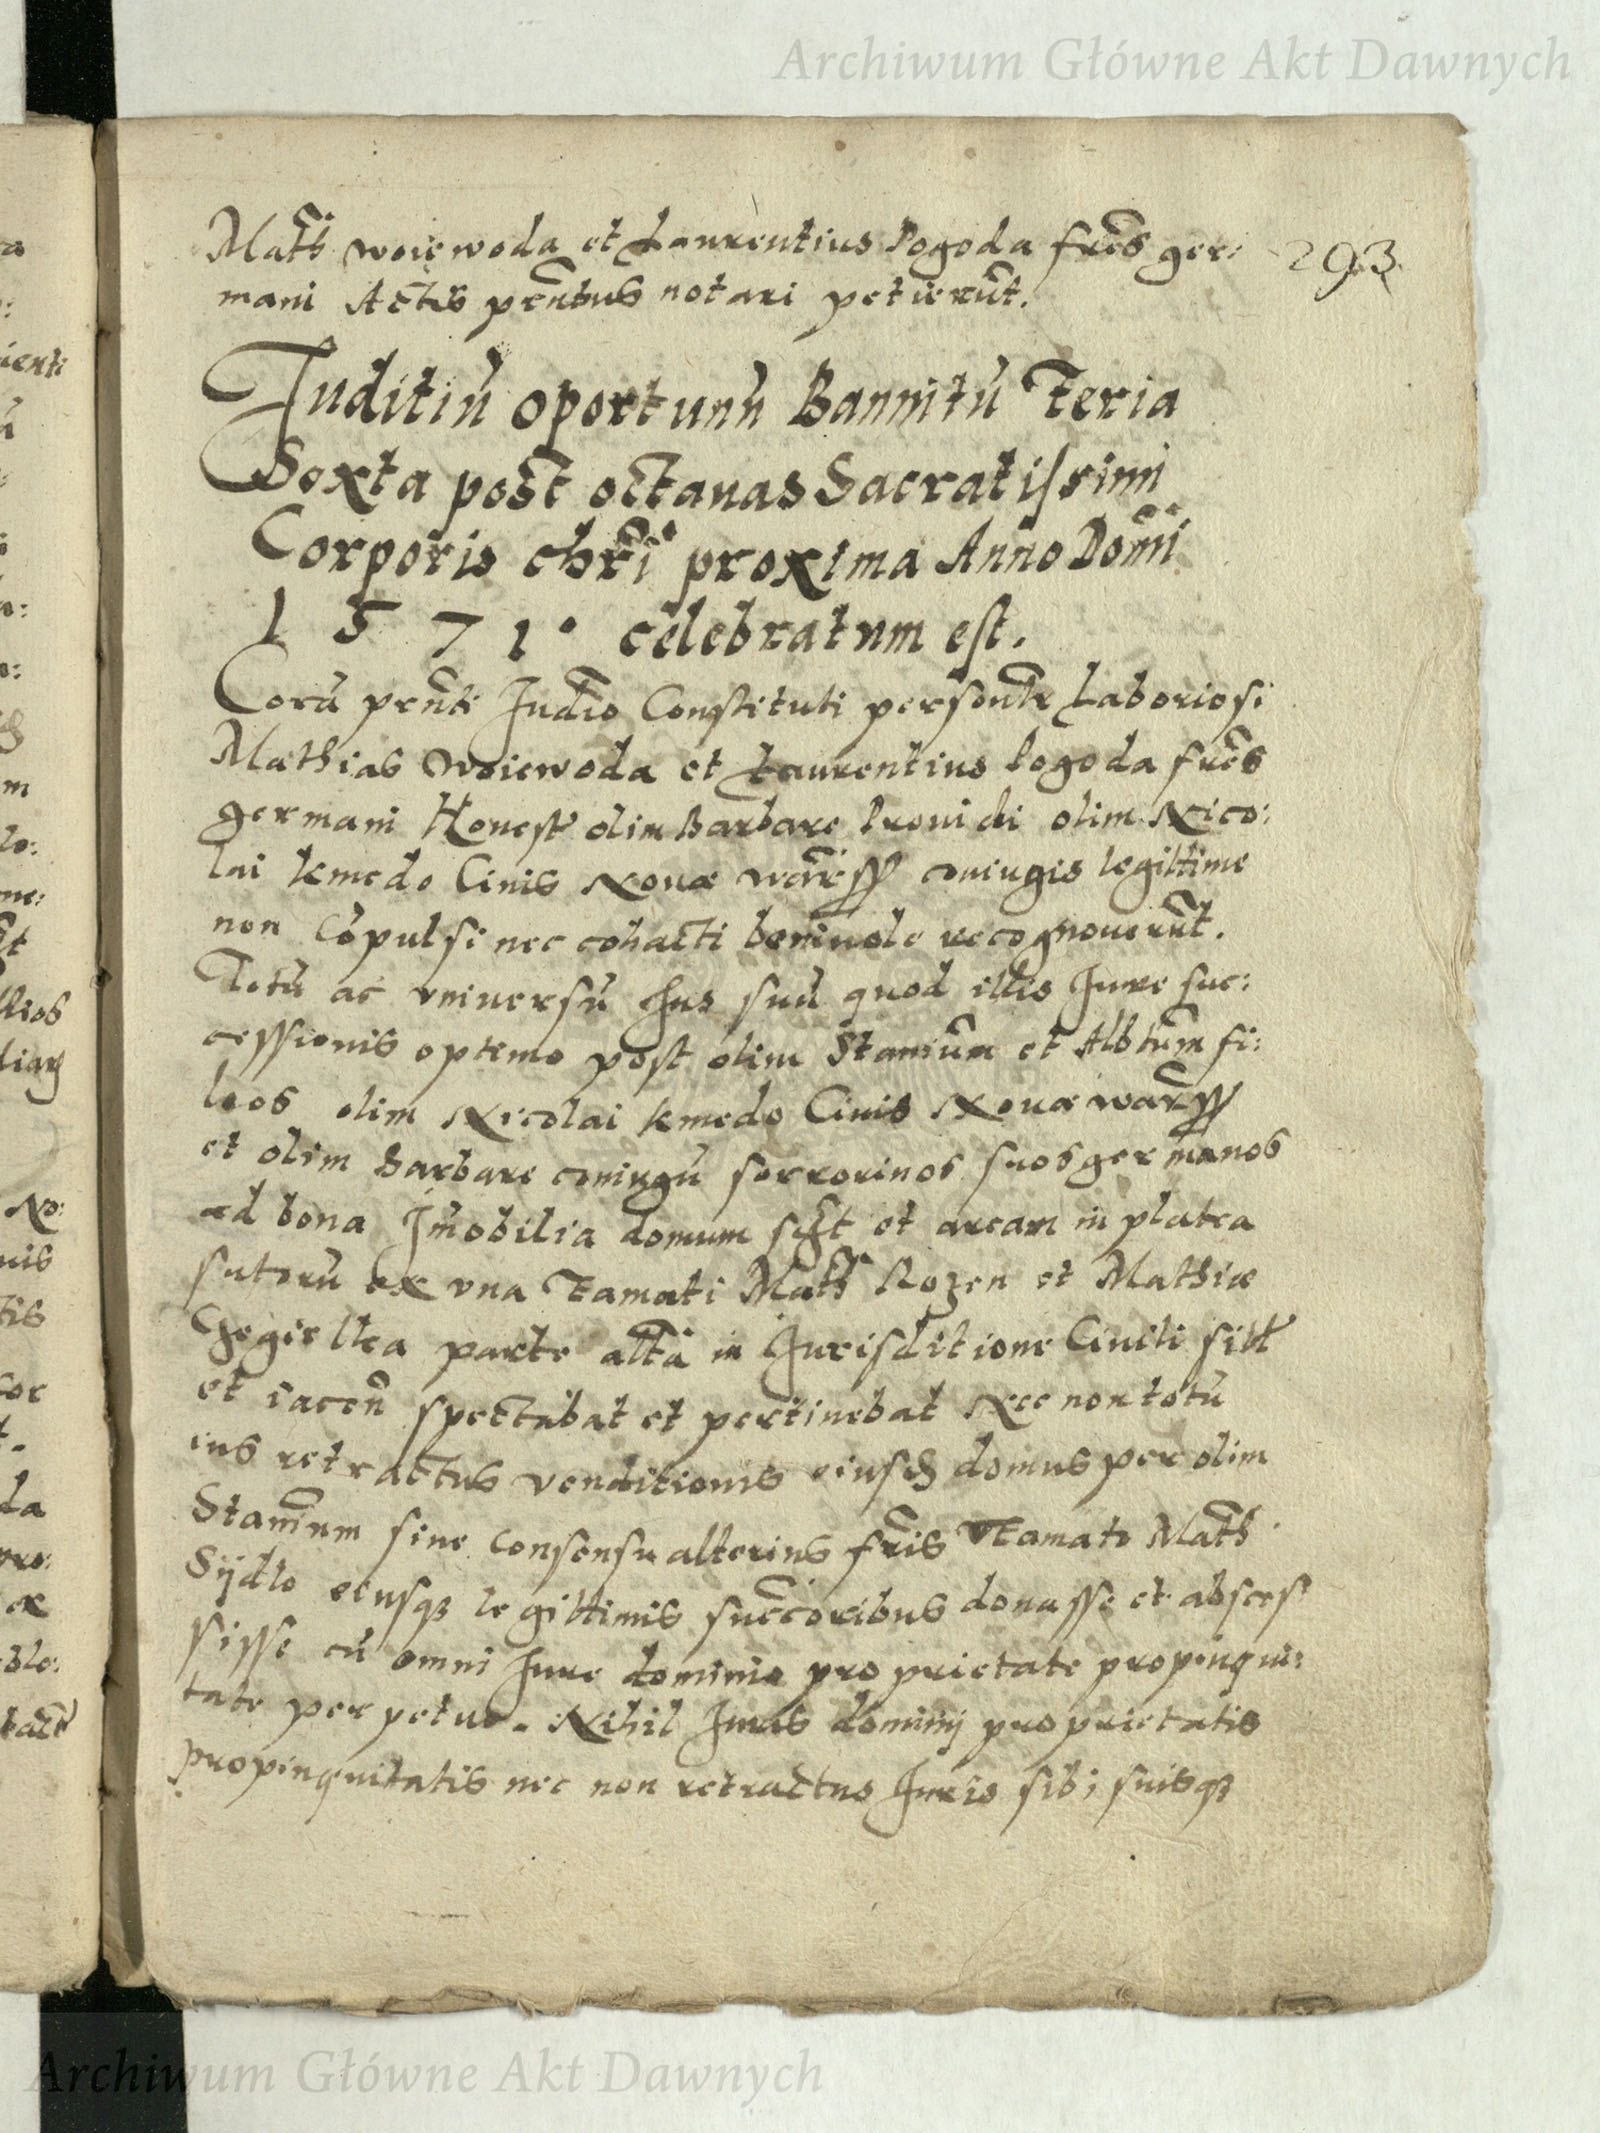 Archiwum Główne Akt Dawnych
Math woiewoda et Laurentius Pogoda fres ger:
293
mani Actis pentibus notari petierut.
Juditiu oportunu Bannitu Feria
Sexta post octauas Sacratissimi
Corporis chri proxima Anno Domi
1571° celebratum est.
Cora pnti Judio Constituti personlr Laboriosi
Mathias Woiewoda et Laurentius Pogoda fres
germani Honeste olim Barbare Prouidi olim Nico:
lai kmedo Ciuis Nouæ warss coniugis legittime
non Copulsi nec cohacti beniuole recognouerut.
Totu ac vniuersu Jus suu quod illis Jure suc:
cessionis optimo post olim Stanium et Albtum fi:
lios olim Nicolai kmedo Ciuis Nouæ warss
et olim Barbare coniugu sorrorinos suos germanos
ad bona Jmobilia domum sct et aream in platea
sutoru ex vna Famati Math Rozen et Mathiæ
parte alta in Jurisditione Ciuili sitt
et iacen spectabat et pertinebat Nec non totu
ius retractus venditionis eiusd domus per olim
Stanium sine consensu alterius fris Famato Math
Sijdlo eiusq legittimis succoribus donasse et absces
sisse cu omni Jure dominio proprietate propinqui:
tate perpetuo. Nihil Juris dominij proprietatis
propinquitatis nec non retractus Juris sibi suisq
Archiwum Główne Akt Dawnych